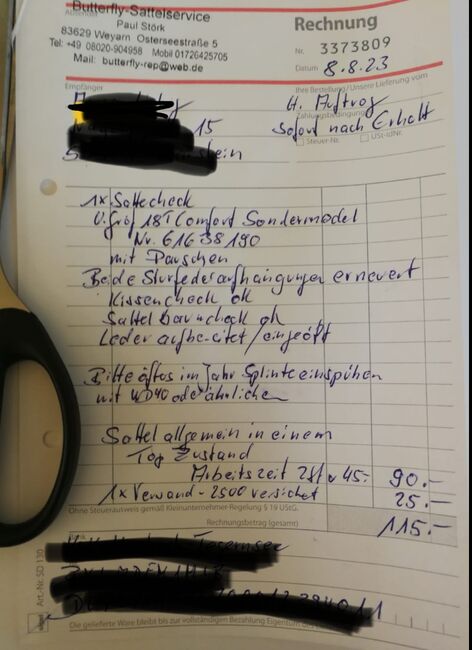 Butterfly-Sattelservice
Absender
Paul Störk
83629 Weyarn Osterseestraße 5
Tel: +49 08020-904958 Mobil 01726425705
Mail: butterfly-rep@web.de
Rechnung
Nr. 3373809
Datum 8.8.23
Empfänger
15
Ihre Bestellung/Unsere Lieferung vom
lt. Auftrag
Zahlungsbedingung
Sofort nach Erhalt
Steuer-Nr. USt-IdNr.
1x Sattelcheck
18" Comfort Sondermodel
Nr. 61638190
mit Pauschen
Beide Sturzfederaufhängungen erneuert
Kissencheck ok
Sattelbaumcheck ok
Leder aufbereitet / eingeölt
Bitte öfters im Jahr Splinte einsprühen
mit WD40 oder ähnlichen
Sattel allgemein in einem
Top Zustand
Arbeitszeit 2st a 45.- 90.-
1x Versand - 2500 versichert 25.-
Ohne Steuerausweis gemäß Kleinunternehmer-Regelung § 19 UStG.
Rechnungsbetrag (gesamt) 115.-
Art.-Nr. SD 130
Die gelieferte Ware bleibt bis zur vollständigen Bezahlung Eigentum des